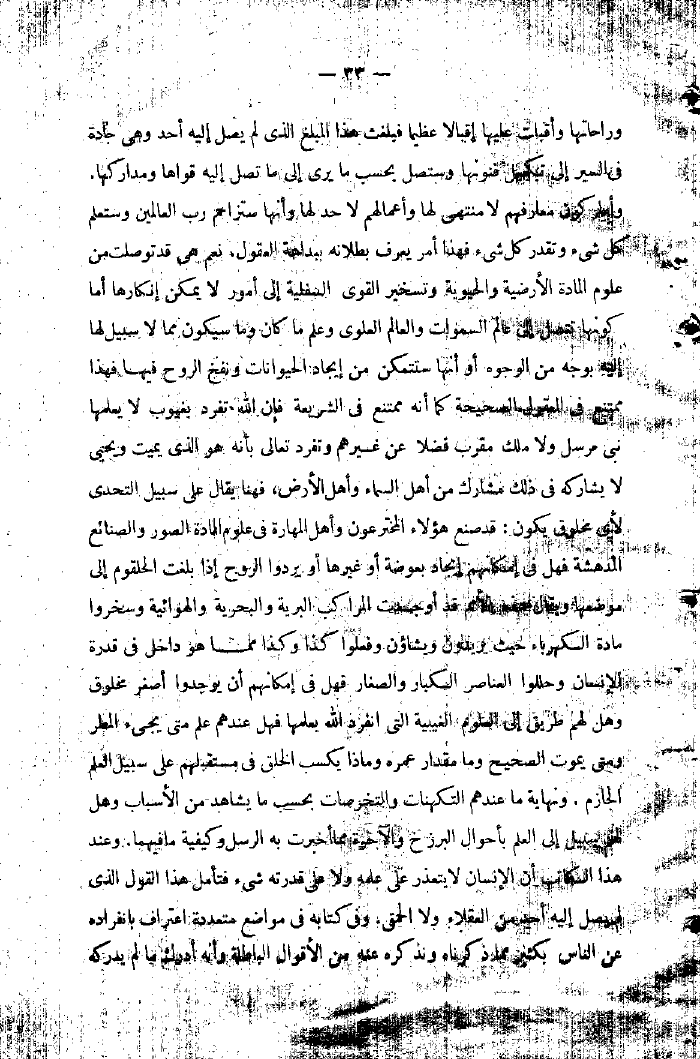 — ٣٣ —
وراحاتها وأقبلت عليها إقبالا عظيما فبلغت هذا المبلغ الذى لم يصل إليه أحد وهى جادة
فى السير إلى تكميل فنونها وستصل بحسب ما يرى إلى ما تصل إليه قواها ومداركها.
وأما كون معارفهم لا منتهى لها وأعمالهم لا حد لها وأنها ستزاحم رب العالمين وستعلم
كل شىء وتقدر كل شىء فهذا أمر يعرف بطلانه ببداهة العقول. نعم هى قد توصلت من
علوم المادة الأرضية والحيوية وتسخير القوى إلى أمور لا يمكن إنكارها أما
كونها تتصل إلى عالم السموات والعالم العلوى وعلم ما كان وما سيكون مما لا سبيل لها
إليه بوجه من الوجوه أو أنها ستتمكن من إيجاد الحيوانات ونفخ الروح فيهـا فهذا
ممتنع فى العقول الصحيحة كما أنه ممتنع فى الشريعة فإن الله تفرد بغيوب لا يعلمها
نبى مرسل ولا ملك مقرب فضلا عن غيرهم وتفرد تعالى بأنه هو الذى يميت ويحيى
لا يشاركه فى ذلك مشارك من أهل السماء وأهل الأرض، فهنا يقال على سبيل التحدى
لأى مخلوق يكون : قد صنع هؤلاء المخترعون وأهل المهارة فى علوم المادة الصور والصنائع
المدهشة فهل فى إمكانهم إيجاد بعوضة أو غيرها أو يردوا الروح إذا بلغت الحلقوم إلى
موضعها ويقال قد أوجدت المراكب البرية والبحرية والهوائية وسخروا
مادة الكهرباء حيث يريدون ويشاؤن وفعلوا كذا وكذا ممـا هو داخل فى قدرة
الإنسان وحللوا العناصر الكبار والصغار فهل فى إمكانهم أن يوجدوا أصغر مخلوق
وهل لهم طريق إلى العلوم الغيبية التى انفرد الله بعلمها فهل عندهم علم متى يجىء المطر
ومتى يموت الصحيح وما مقدار عمره وماذا يكسب الخلق فى مستقبلهم على سبيل العلم
الجازم . ونهاية ما عندهم التكهنات والتخرصات بحسب ما يشاهد من الأسباب وهل
لهم سبيل إلى العلم بأحوال البرزخ والآخرة مما أخبرت به الرسل وكيفية ما فيهما. وعند
هذا الكاتب أن الإنسان لا يتعذر على علمه ولا على قدرته شىء فتأمل هذا القول الذى
لم يصل إليه أحد من العقلاء ولا الحمقى. وفى كتابه فى مواضع متعددة اعتراف بانفراده
عن الناس بكثير مما ذكرناه ونذكره عنه من الأقوال الباطلة وأنه أدرك ما لم يدركه